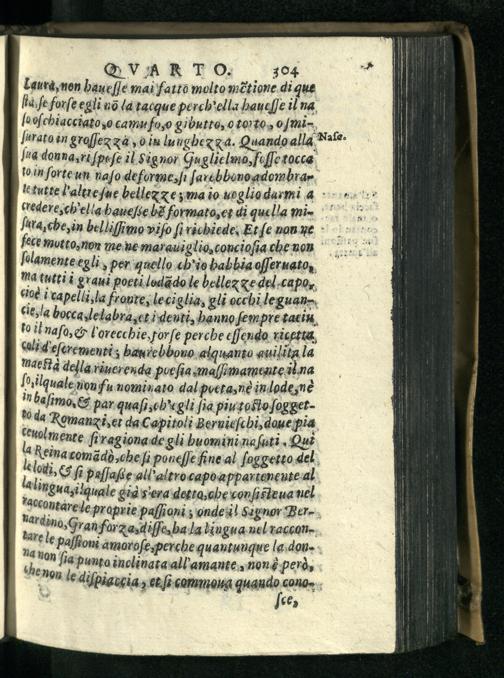 QVARTO. 304
Laura, non hauesse mai fatto molto mẽtione di que
sta, se forse egli nõ la tacque perch'ella hauesse il na
so, o schiacciato, o camuso, o gibutto, o torto, o smi-
surato in grossezza, o in lunghezza. Quando alla
Naso.
sua donna, rispose il Signor Guglielmo, fosse tocca
to in sorte un naso deforme, si sarebbono adombra-
te tutte l'altre sue bellezze; ma io uoglio darmi a
credere, ch'ella hauesse bẽ formato, et di quella mi-
sura, che, in bellissimo viso si richiede. Et se non ne
fece motto, non me ne marauiglio, conciosia che non
solamente egli, per quello ch'io habbia osseruato,
ma tutti i graui poeti lodãdo le bellezze del capo,
cioè i capelli, la fronte, le ciglia, gli occhi le guan-
cie, la bocca, le labra, et i denti, hanno sempre taciu
to il naso, & l'orecchie, forse perche essendo ricetta
coli d'escrementi; haurebbono alquanto auilita la
maestà della riuerenda poesia, massimamente il na
so, il quale non fu nominato dal poeta, nè in lode, nè
in basimo, & par quasi, ch'egli sia piu tosto sogget-
to da Romanzi, et da Capitoli Bernieschi, doue pia
ceuolmente si ragiona de gli huomini nasuti. Qui
la Reina comãdò, che si ponesse fine al soggetto del
le lodi, & si passasse all'altro capo appartenente al
la lingua, il quale già s'era detto, che consisteua nel
raccontare le proprie passioni; onde il Signor Ber-
nardino, Gran forza, disse, ha la lingua nel raccon-
tare le passioni amorose, perche quantunque la don-
na non sia punto inclinata all'amante, non è però,
che non le dispiaccia, et si commoua quando cono-
sce,